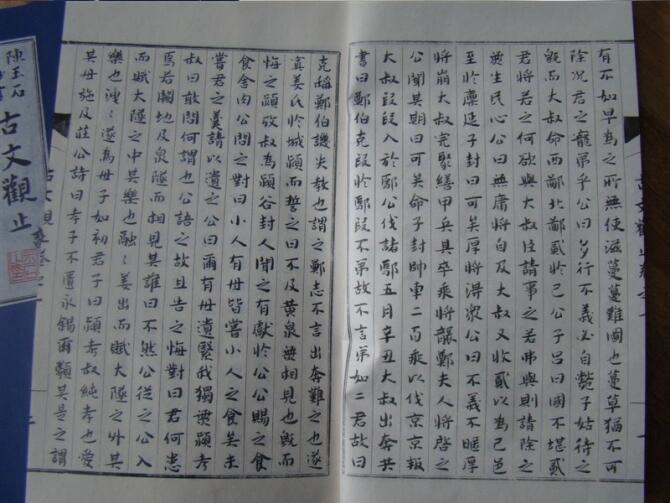 有不如早為之所無使滋蔓蔓難圖也蔓草猶不可
除況君之寵弟乎公曰多行不義必自斃子姑待之
既而大叔命西鄙北鄙貳於己公子呂曰國不堪貳
君將若之何欲與大叔臣請事之若弗與則請除之
無生民心公曰無庸將自及大叔又收貳以為己邑
至於廩延子封曰可矣厚將得眾公曰不義不暱厚
將崩大叔完聚繕甲兵具卒乘將襲鄭夫人將啓之
公聞其期曰可矣命子封帥車二百乘以伐京京叛
大叔段段入於鄢公伐諸鄢五月辛丑大叔出奔共
書曰鄭伯克段於鄢段不弟故不言弟如二君故曰
克稱鄭伯譏失教也謂之鄭志不言出奔難之也遂
寘姜氏於城潁而誓之曰不及黃泉無相見也既而
悔之潁考叔為潁谷封人聞之有獻於公公賜之食
食舍肉公問之對曰小人有母皆嘗小人之食矣未
嘗君之羹請以遺之公曰爾有母遺繄我獨無潁考
叔曰敢問何謂也公語之故且告之悔對曰君何患
焉若闕地及泉隧而相見其誰曰不然公從之公入
而賦大隧之中其樂也融〻姜出而賦大隧之外其
樂也洩〻遂為母子如初君子曰潁考叔純孝也愛
其母施及莊公詩曰孝子不匱永錫爾類其是之謂
陳玉石
古文觀止